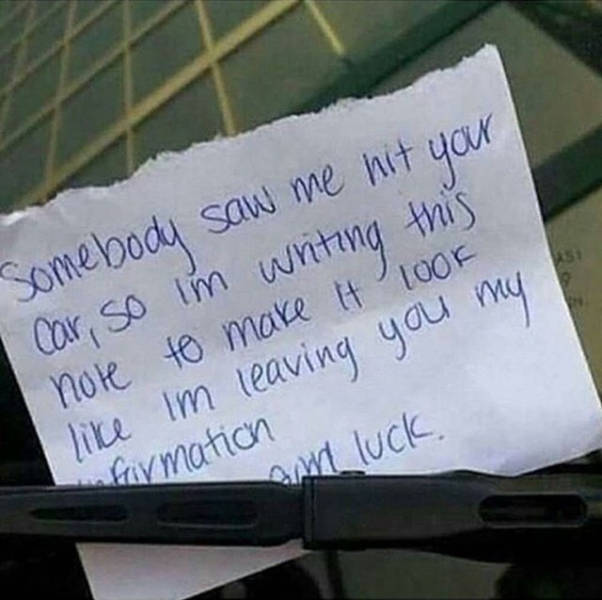 Somebody saw me hit your
car, so im writing this
note to make it look
like Im leaving you my
infirmation
luck.